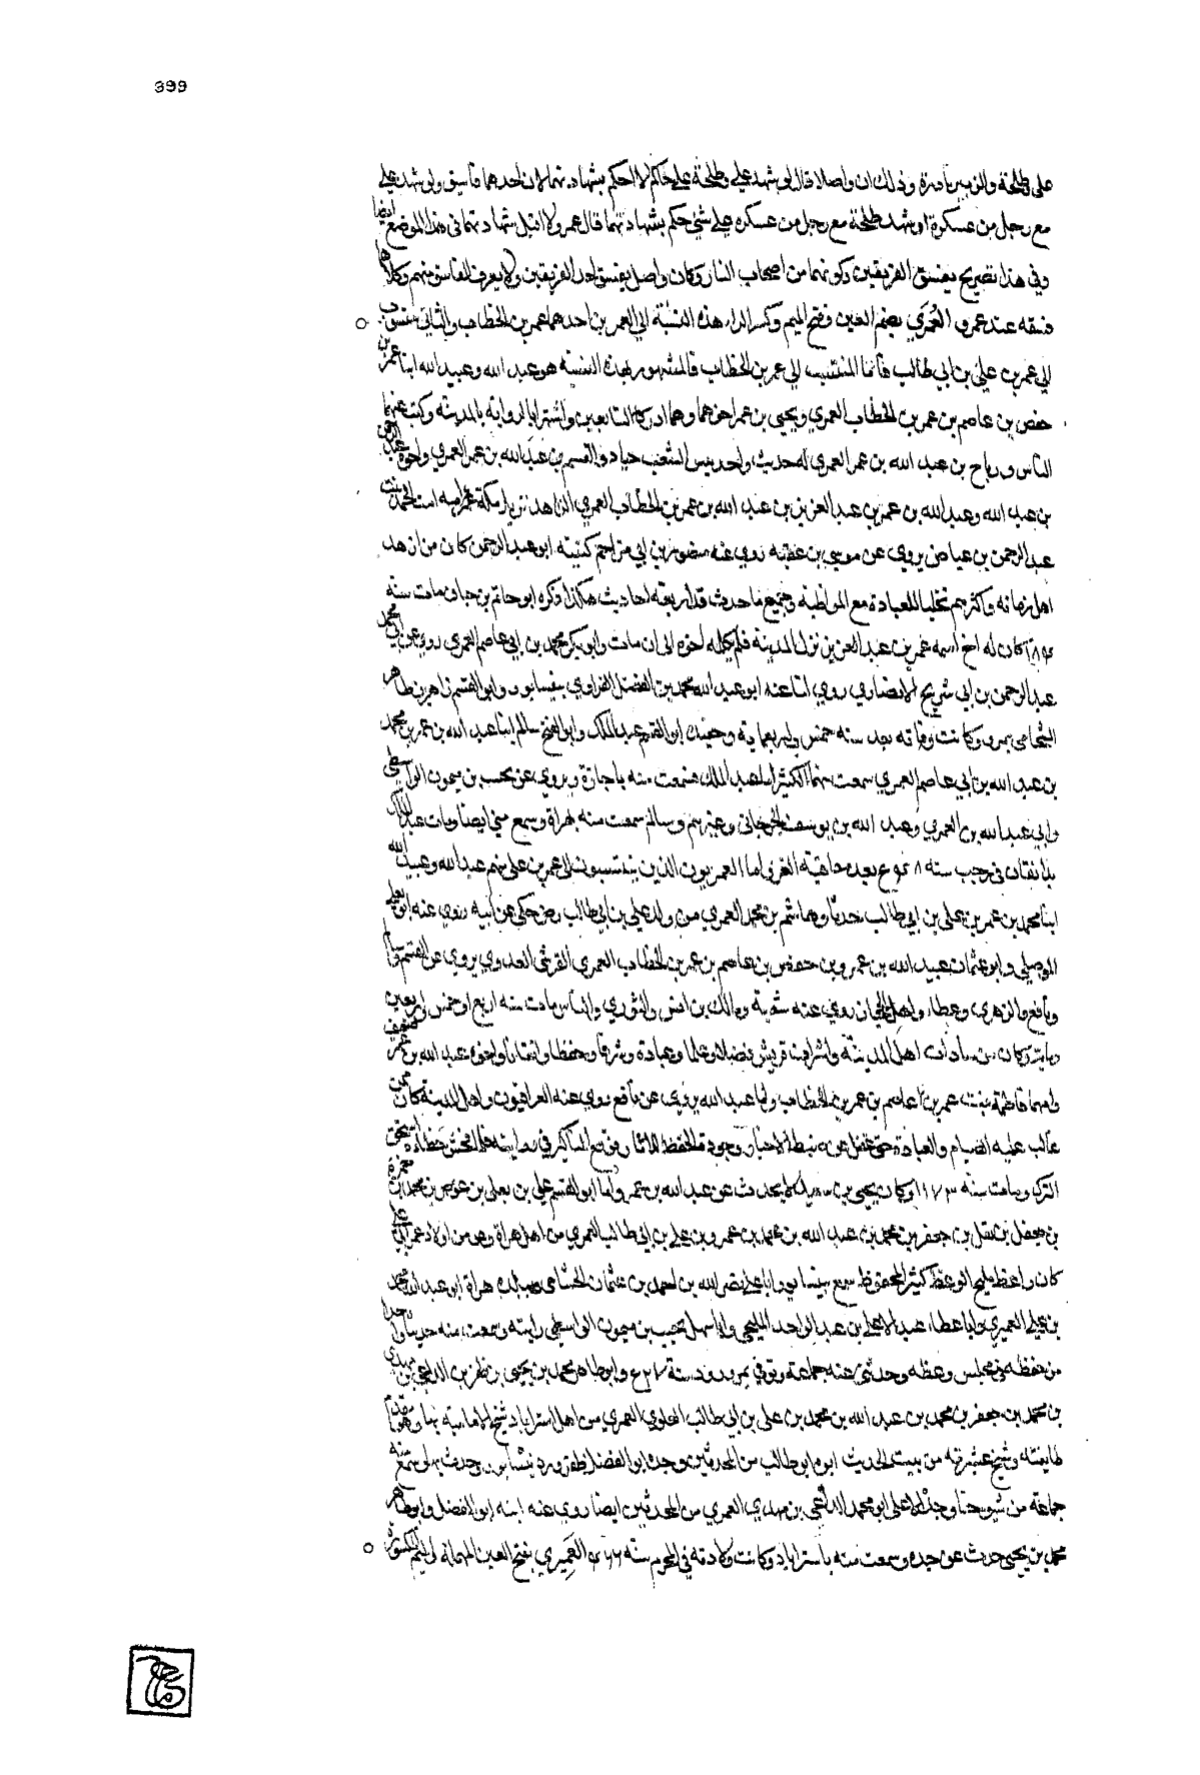 399
على وطلحة والزبير نادرة وذلك ان واصلا قال لو شهد علي وطلحة على حاكم لا احكم بشهادتهما لان احدهما فاسق ولو شهد علي
مع رجل من عسكره او شهد طلحة مع رجل من عسكره على شي حكم بشهادتهما قال عمرو لا اقبل شهادتهما فى هذا الموضع ايضا
وفي هذا تصريح بفسق الفريقين وكونهما من اصحاب النار وكان واصل يفسق احد الفريقين ولا يعرف الفاسق منهم وكلاهما
فسقه عند عمرو العُمَري بضم العين وفتح الميم وكسر الراء هذه النسبة الي العمرين احدهما عمر بن الخطاب والثاني منسوب
الي عمر بن علي بن ابي طالب فاما المنتسب الي عمر بن الخطاب فالمشهور بهذه النسبة هو عبد الله وعبيد الله ابنا عمر بن
حفص بن عاصم بن عمر بن الخطاب العمري ويحيى بن عمر اخوهما وهما ادركا التابعين واشتهرا بالرواية بالمدينة وكتب عنهما
الناس ورباح بن عبيد الله بن عمر العمري له حديث واحد والقسم بن عبد الله بن عمر العمري واخوه عبد الرحمن
بن عبد الله وعبد الله بن عمر بن عبد العزيز بن عبد الله بن عمر بن الخطاب العمري الزاهد امه امة الحميد بنت
عبد الرحمن بن عياض يروي عن موسى بن عقبة روي عنه منصور بن ابي مزاحم كنيته ابو عبد الرحمن كان من ازهد
اهل زمانه واكثرهم تخليا للعبادة مع المواظبة وجميع ما حدث قدر اربعة احاديث هكذا ذكره ابو حاتم بن حبان مات سنة
كان له اخ اسمه عمر بن عبد العزيز نزل المدينة فلم يكلمه اخوه الى ان مات وابو بكر محمد بن ابي عاصم العمري روي عن ابي محمد
عبد الرحمن بن ابي شريح الانصاري روي لنا عنه ابو عبد الله محمد بن الفضل الفراوي بنيسابور وابو القسم زاهر بن طاهر
الشحامي بمرو وكانت وفاته بعد سنه خمس واربعماية وحفيداه ابو القسم عبد الملك وابو الفتح سالم ابنا عبد الله بن عمر بن محمد
بن عبد الله بن ابي عاصم العمري سمعت منهما الكثير اما عبد الملك سمعت منه باجازة ويروي عن نجيب بن ميمون الواسطي
وابي عبد الله العمري وعبد الله بن يوسف الجرجاني وغيرهم وسالم سمعت منه بهراة وسمع مني ايضا ومات عبد الملك
في رجب سنه اما العمريون الذين ينتسبون الى عمر بن علي منهم عبد الله وعبيد الله
ابنا محمد بن عمر بن علي بن ابي طالب حدثا وهاشم بن محمد العمري من ولد علي بن ابي طالب رضي حكى عن ابيه روي عنه ابو يعلى
الموصلي وابو عثمان عبيد الله بن عمر بن حفص بن عاصم بن عمر بن الخطاب العمري القرشي العدوي يروي عن القسم وسالم
ونافع والزهري وعطاء واهل الحجاز روي عنه شعبة ومالك بن انس والثوري والناس مات سنه اربع او خمس اربعين
ومايه وكان من سادات اهل المدينة واشراف قريش فضلا وعلما وعبادة وشرفا وحفظا واتقانا واخوه عبد الله بن عمر
وامهما فاطمة بنت عمر بن عاصم بن عمر بن الخطاب واما عبد الله يروي عن نافع روي عنه العراقيون واهل المدينة كان ممن
غلب عليه الصيام والعبادة حتى غفل عن ضبط الاخبار وجودة الحفظ للاثار فوقع المناكير في روايته فلما فحش خطاؤه استحق
الترك ومات سنة ١٧٣ وكان يحيى بن سعيد لا يحدث عن عبد الله بن عمر واما ابو القسم علي بن يعلى بن عوض بن محمد بن حمزة
بن جعفر بن محمد بن عبد الله بن محمد بن عمر بن علي بن ابي طالب العمري من اهل هراة وهو من اولاد عمر بن علي
كان واعظا مليح الوعظ كثير المحفوظ سمع بنيسابور ابا علي نصر الله بن احمد بن عثمان الخشنامي وببلده هراة ابو عبد الله محمد
بن علي العميري وابا عطاء عبد الاعلى بن عبد الواحد المليحي وابا سهل نجيب بن ميمون الواسطي رايته وسمعت منه حديثا واحدا
من حفظه في مجلس وعظه وحدثني عنه جماعة وتوفي بمرورود سنة وابو طاهر محمد بن يحيى بن ظفر بن الداعي بن مهدي
بن محمد بن جعفر بن محمد بن عبد الله بن محمد بن عمر بن علي بن ابي طالب العلوي العمري من اهل استراباد شيخ الامامية بها وهو مقدم
طايفته وشيخ عشيرته من بيت الحديث ابوه ابو طالب من المحدثين وجده ابو الفضل ظفر ورد نيسابور وحدث بها وسمع منه
جماعة من شيوخنا وجده الاعلى ابو محمد الداعي بن مهدي العمري من المحدثين ايضا روي عنه ابنه ابو الفضل وابو طاهر
محمد بن يحيى حدث عن جده وسمعت منه باستراباد وكانت ولادته في المحرم سنة العَمِيري بفتح العين المهملة والميم المكسورة